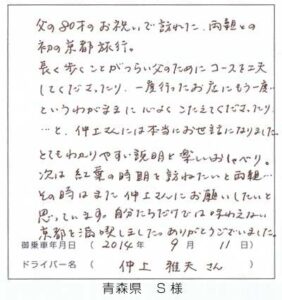 父の80才のお祝いで訪れた、両親との
初の京都旅行。
長く歩くことがつらい父のためにコースを工夫
してくださったり、一度行ったお店にもう一度…
というわがままに心よくこたえてくださったり
…と、仲上さんには本当にお世話になりました。
とてもわかりやすい説明と楽しいおしゃべり。
次は紅葉の時期を訪ねたいと両親…
その時はまた仲上さんにお願いしたいと
思っています。自分たちだけでは味わえない
京都を満喫しました。ありがとうございました。
御乗車年月日 ( 2014年 9月 11日 )
ドライバー名 ( 仲上 雅夫 さん )
青森県 S様